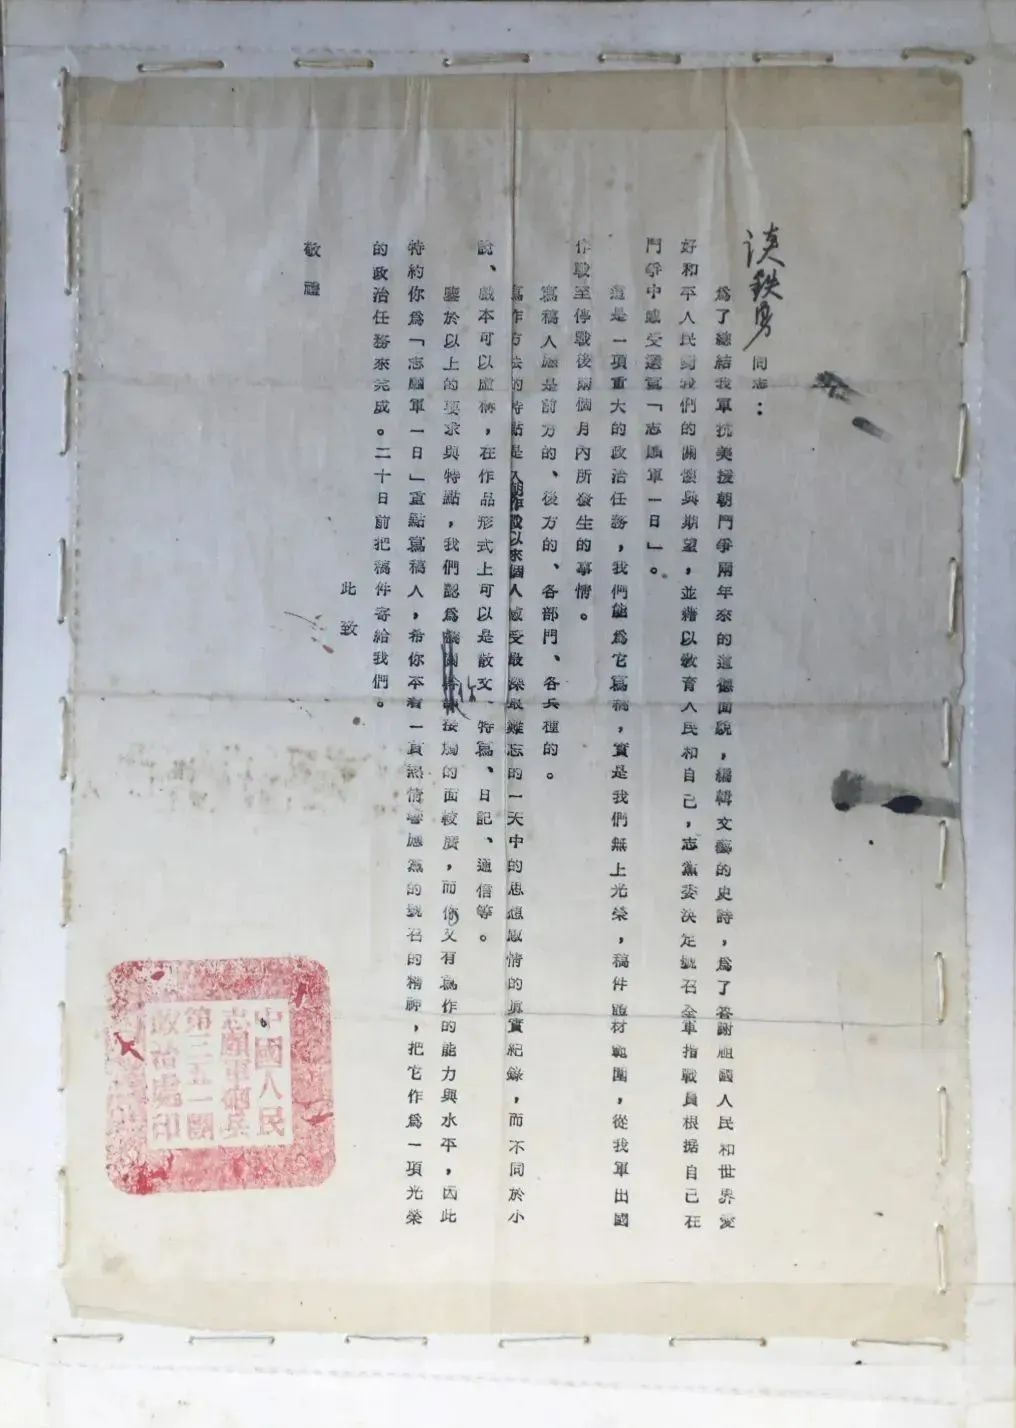 谈鉄勇同志：
爲了總結我軍抗美援朝鬥爭兩年來的道德面貌，編輯文藝的史詩，爲了答謝祖國人民和世界愛
好和平人民對我們的關懷與期望，並藉以教育人民和自己，志黨委決定號召全軍指戰員根据自己在
鬥爭中感受選寫「志願軍一日」。
這是一項重大的政治任務，我們能爲它寫稿，實是我們無上光榮，稿件題材範圍，從我軍出國
作戰至停戰後兩個月內所發生的事情。
寫稿人應是前方的、後方的、各部門、各兵種的。
寫作方法的特點是入朝作戰以來個人感受最深最難忘的一天中的思想感情的眞實紀錄，而不同於小
說、戲本可以虛構，在作品形式上可以是散文、特寫、日記、通信等。
鑒於以上的要求與特點，我們認爲接觸的面較廣，而你又有寫作的能力與水平，因此
特約你爲「志願軍一日」重點寫稿人，希你本着一貫熱情響應黨的號召的精神，把它作爲一項光榮
的政治任務來完成。二十日前把稿件寄給我們。
此致
敬禮
中國人民
志願軍砲兵
第三五一團
政治處印